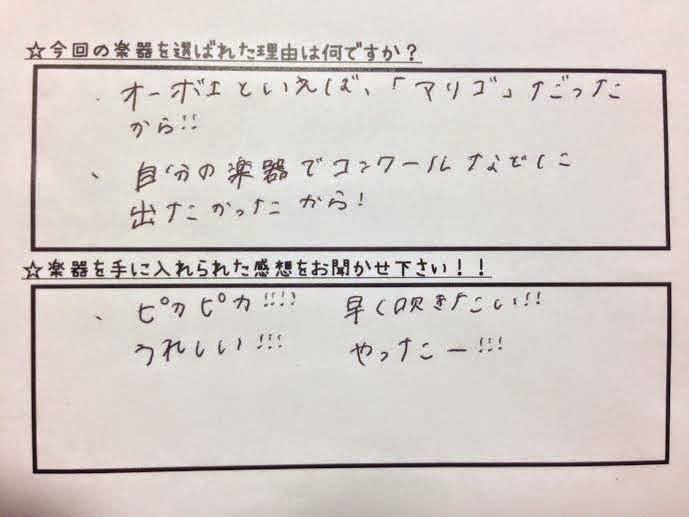 ☆今回の楽器を選ばれた理由は何ですか？
・オーボエといえば、「マリゴ」だった
から!!
、自分の楽器でコンクールなどに
出たかったから!
☆楽器を手に入れられた感想をお聞かせ下さい！！
、ピカピカ!!!! 早く吹きたい!!
うれしい!!! やったー!!!